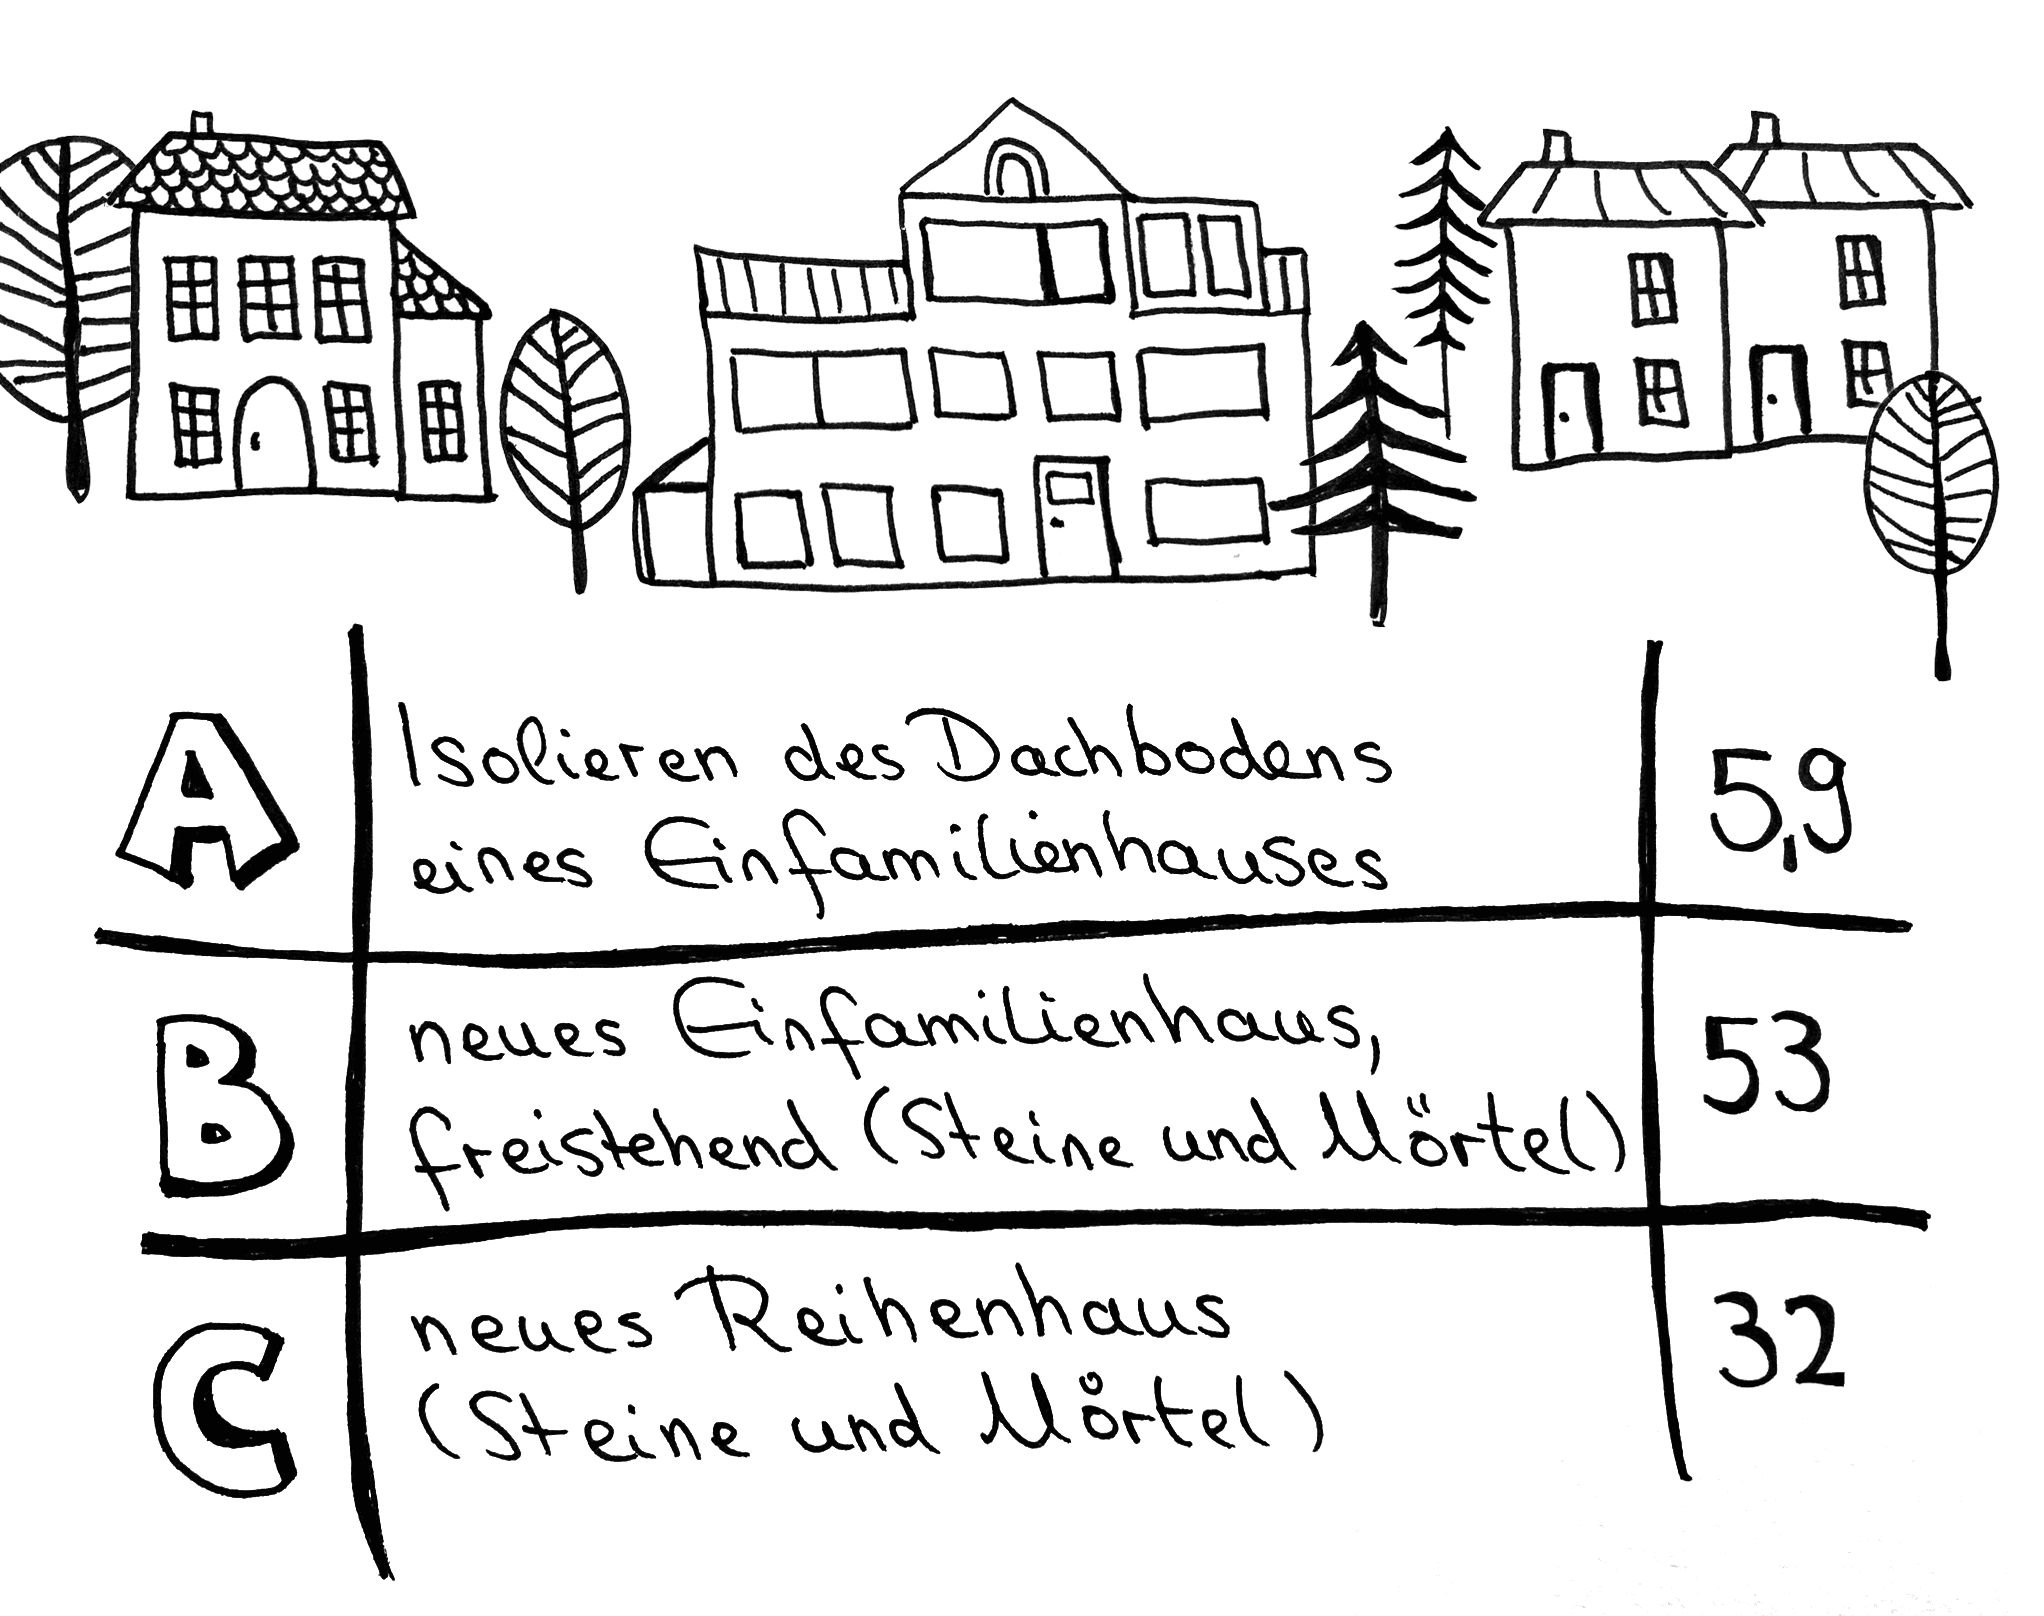 A
Isolieren des Dachbodens
eines Einfamilienhauses
5,9
B
neues Einfamilienhaus,
freistehend (Steine und Mörtel)
53
C
neues Reihenhaus
(Steine und Mörtel)
32